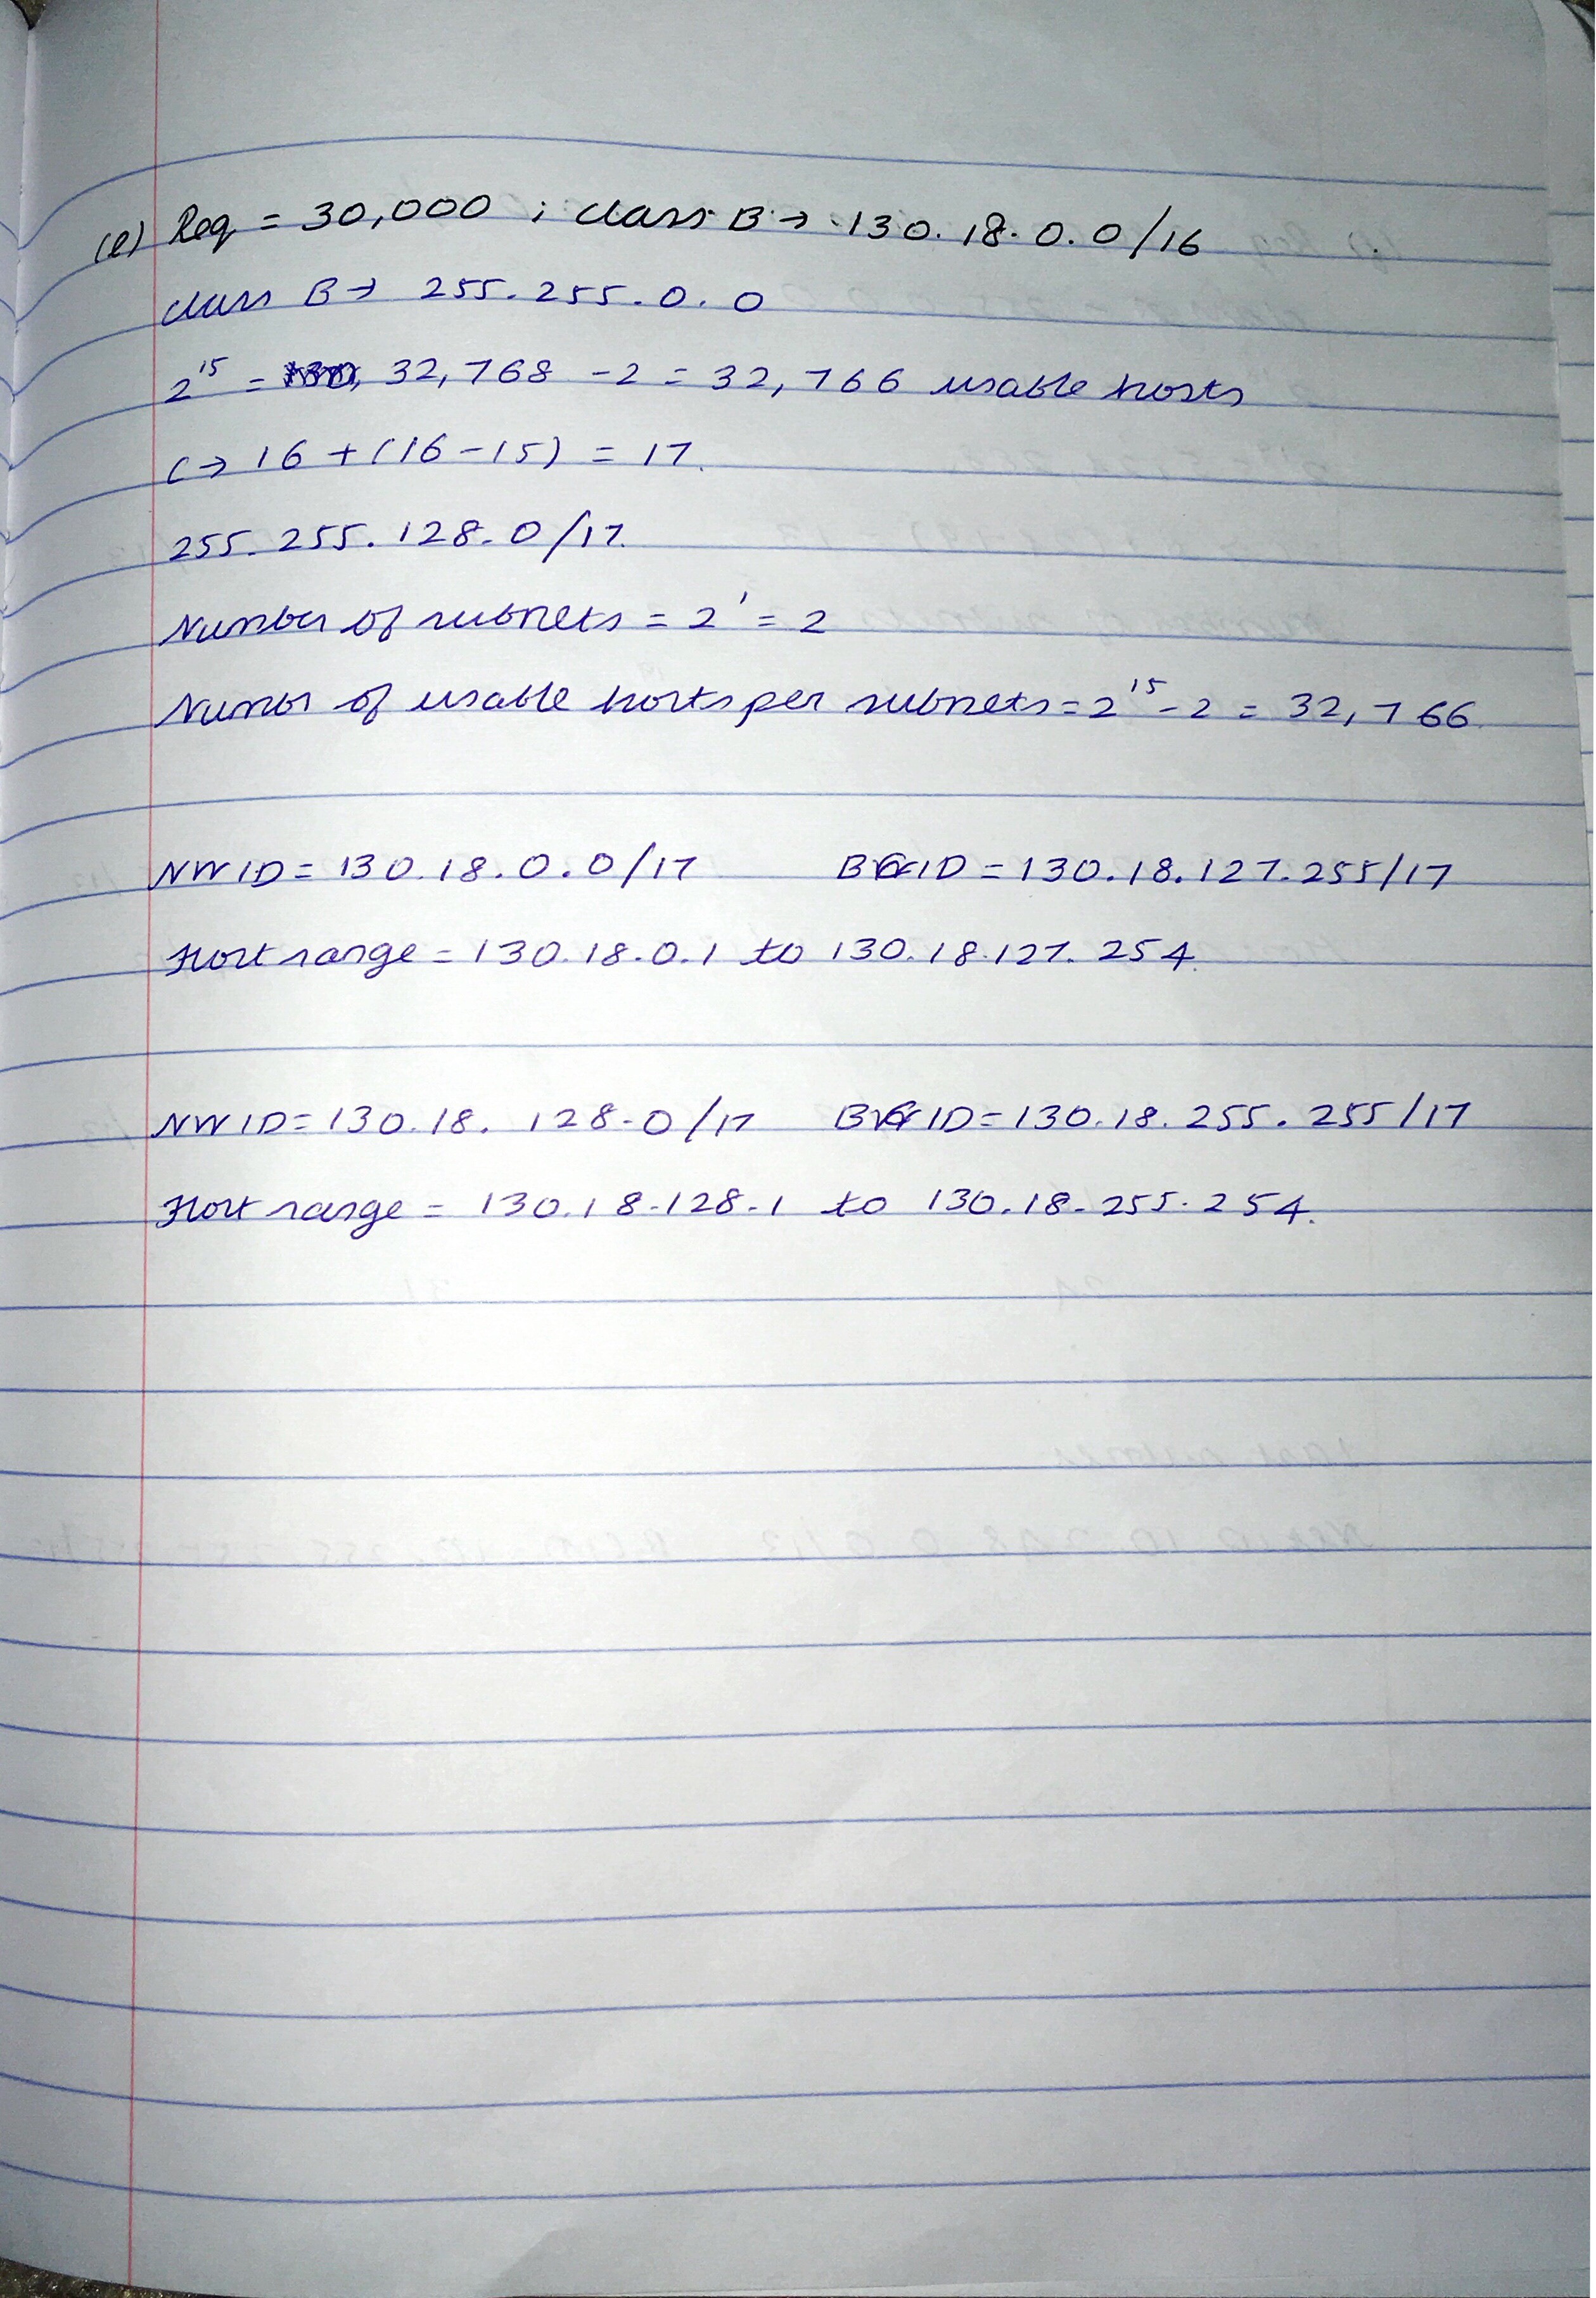 (e) Req = 30,000 ; class B → 130.18.0.0/16
class B → 255.255.0.0
2^15 = 32,768 - 2 = 32,766 usable hosts
C → 16 + (16 - 15) = 17.
255.255.128.0/17.
Number of subnets = 2^1 = 2
Numbr of usable hosts per subnets = 2^15 - 2 = 32,766.
NWID = 130.18.0.0/17 BCID = 130.18.127.255/17
Host range = 130.18.0.1 to 130.18.127.254.
NWID = 130.18.128.0/17 BCID = 130.18.255.255/17
Host range = 130.18.128.1 to 130.18.255.254.